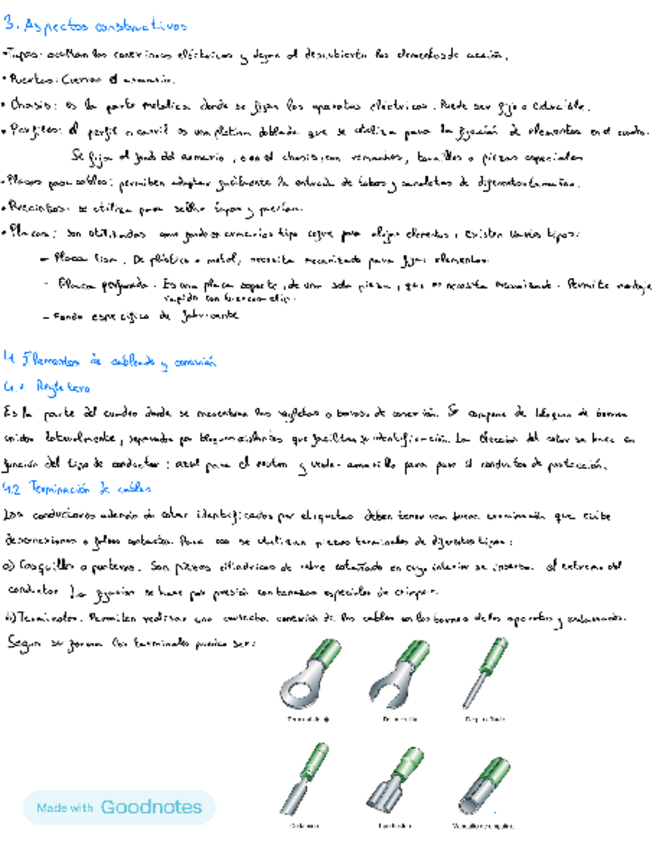 3. Aspectos constructivos
• Tapas: ocultan las conexiones eléctricas y dejan al descubierto los elementos de acción.
• Puertas: Cierran el armario.
• Chasis: es la parte metálica donde se fijan los aparatos eléctricos. Puede ser fijo o extraíble.
• Perfiles: el perfil o carril es una pletina doblada que se utiliza para la fijación de elementos en el cuadro.
Se fija al fondo del armario, o en el chasis, con remaches, tornillos o piezas especiales
• Placas pasacables: permiten adaptar fácilmente la entrada de tubos y canaletas de diferentes tamaños.
• Precintos: se utiliza para sellar tapas y puertas.
• Placas: son utilizadas como fondo en armarios tipo cofre para alojar elementos, existen varios tipos:
- Placa lisa. De plástico o metal, necesita mecanizado para fijar elementos.
- Placa perforada. Es una placa soporte, de una sola pieza, que no necesita mecanizado. Permite montaje
rapido con tuercas clip.
- Fondo específico de fabricante
4 Elementos de cableado y conexión
4.1 Regletero
Es la parte del cuadro donde se encuentran las regletas o bornas de conexión. Se compone de bloques de bornas
unidos lateralmente, separados por bloques aislantes que facilitan su identificación. La elección del color se hace en
función del tipo de conductor: azul para el neutro y verde-amarillo para el conductor de protección.
4.2 Terminación de cables
Los conductores además de estar identificados por etiquetas deben tener una buena terminación que evite
desconexiones o falsos contactos. Para eso se utilizan piezas terminales de diferentes tipos:
a) Casquillos o punteras. Son piezas cilíndricas de cobre estañado en cuyo interior se insertan el extremo del
conductor. La fijación se hace por presión con tenazas especiales de crimpar.
b) Terminales. Permiten realizar una correcta conexión de los cables con los bornes de los aparatos y
Segun su forma los terminales pueden ser:
Made with Goodnotes